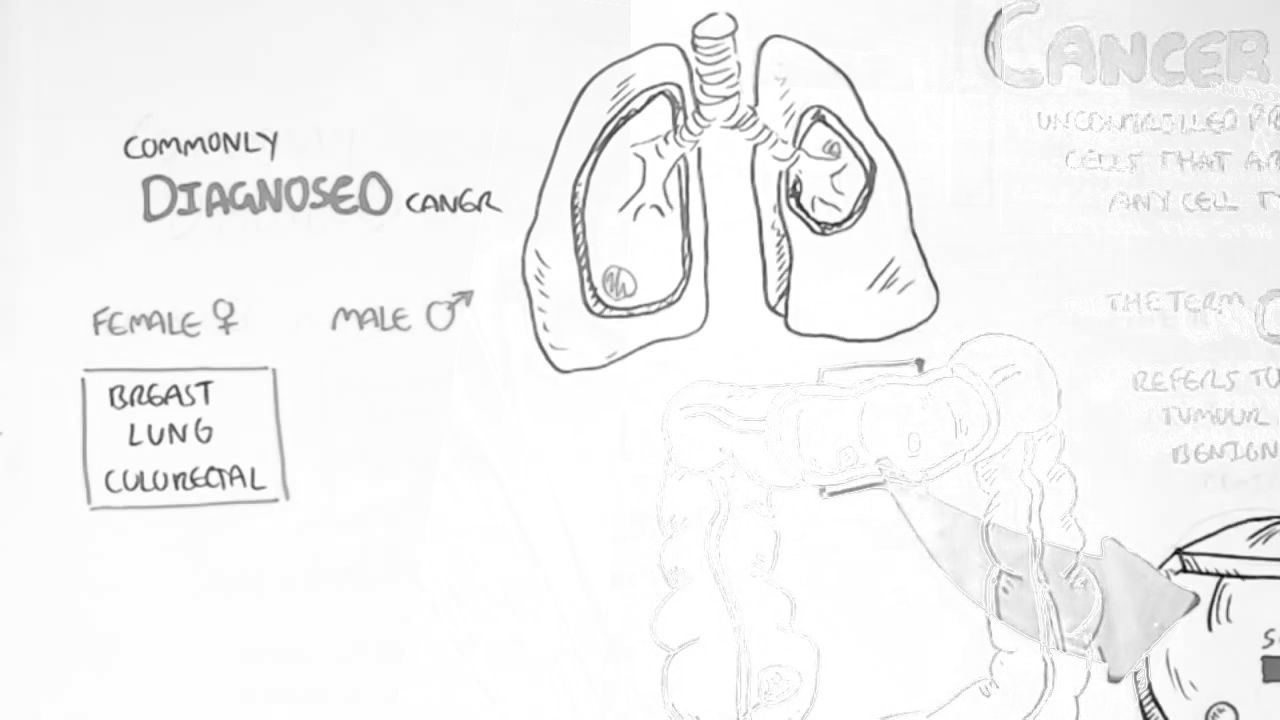 COMMONLY
DIAGNOSED CANER
FEMALE ♀
MALE ♂
BREAST
LUNG
CULORECTAL
CANCER
UNCONTROLLED
CELLS THAT
ANY CELL
THE TERM
REFERS
TUMOUR
BENIGN